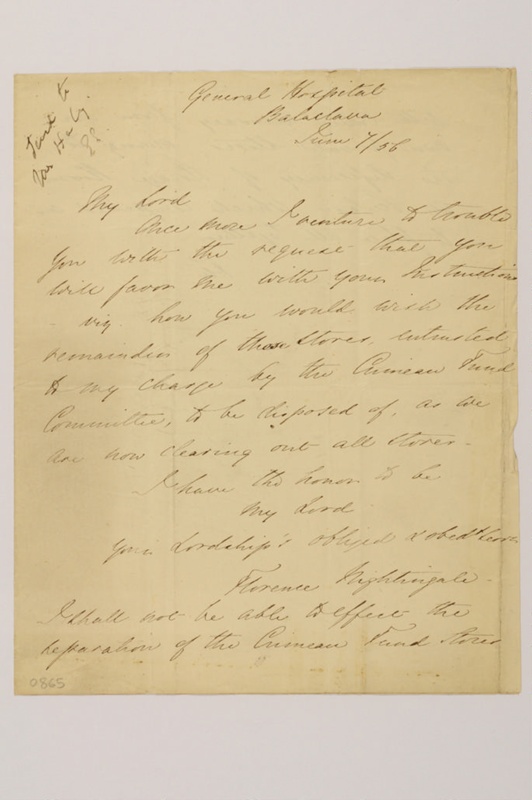 General Hospital
Balaclava
June 7/56
My Lord
Once more I venture to trouble
you with the request that you
will favor me with your Instructions
viz how you would wish the
remainder of those Stores, entrusted
to my charge by the Crimean Fund
Committee, to be disposed of, as we
are now clearing out all stores -
I have the honor to be
My Lord
your Lordship's obliged & obedt
Florence Nightingale -
I shall not be able to effect the
separation of the Crimean Fund Stores
0865